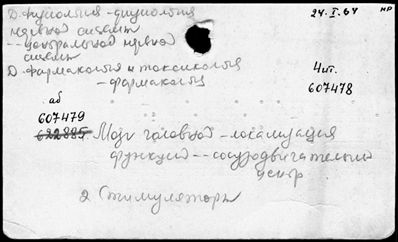 Д. физиология - физиология
нервной системы
-- центральной нервной
системы
Д. фармакология и токсикология
- фармакология
24.I.64
НР
Чит.
607478
аб
607479
622885 Мозг головной - локализация
функций -- сосудодвигательный
центр
2 Стимуляторы